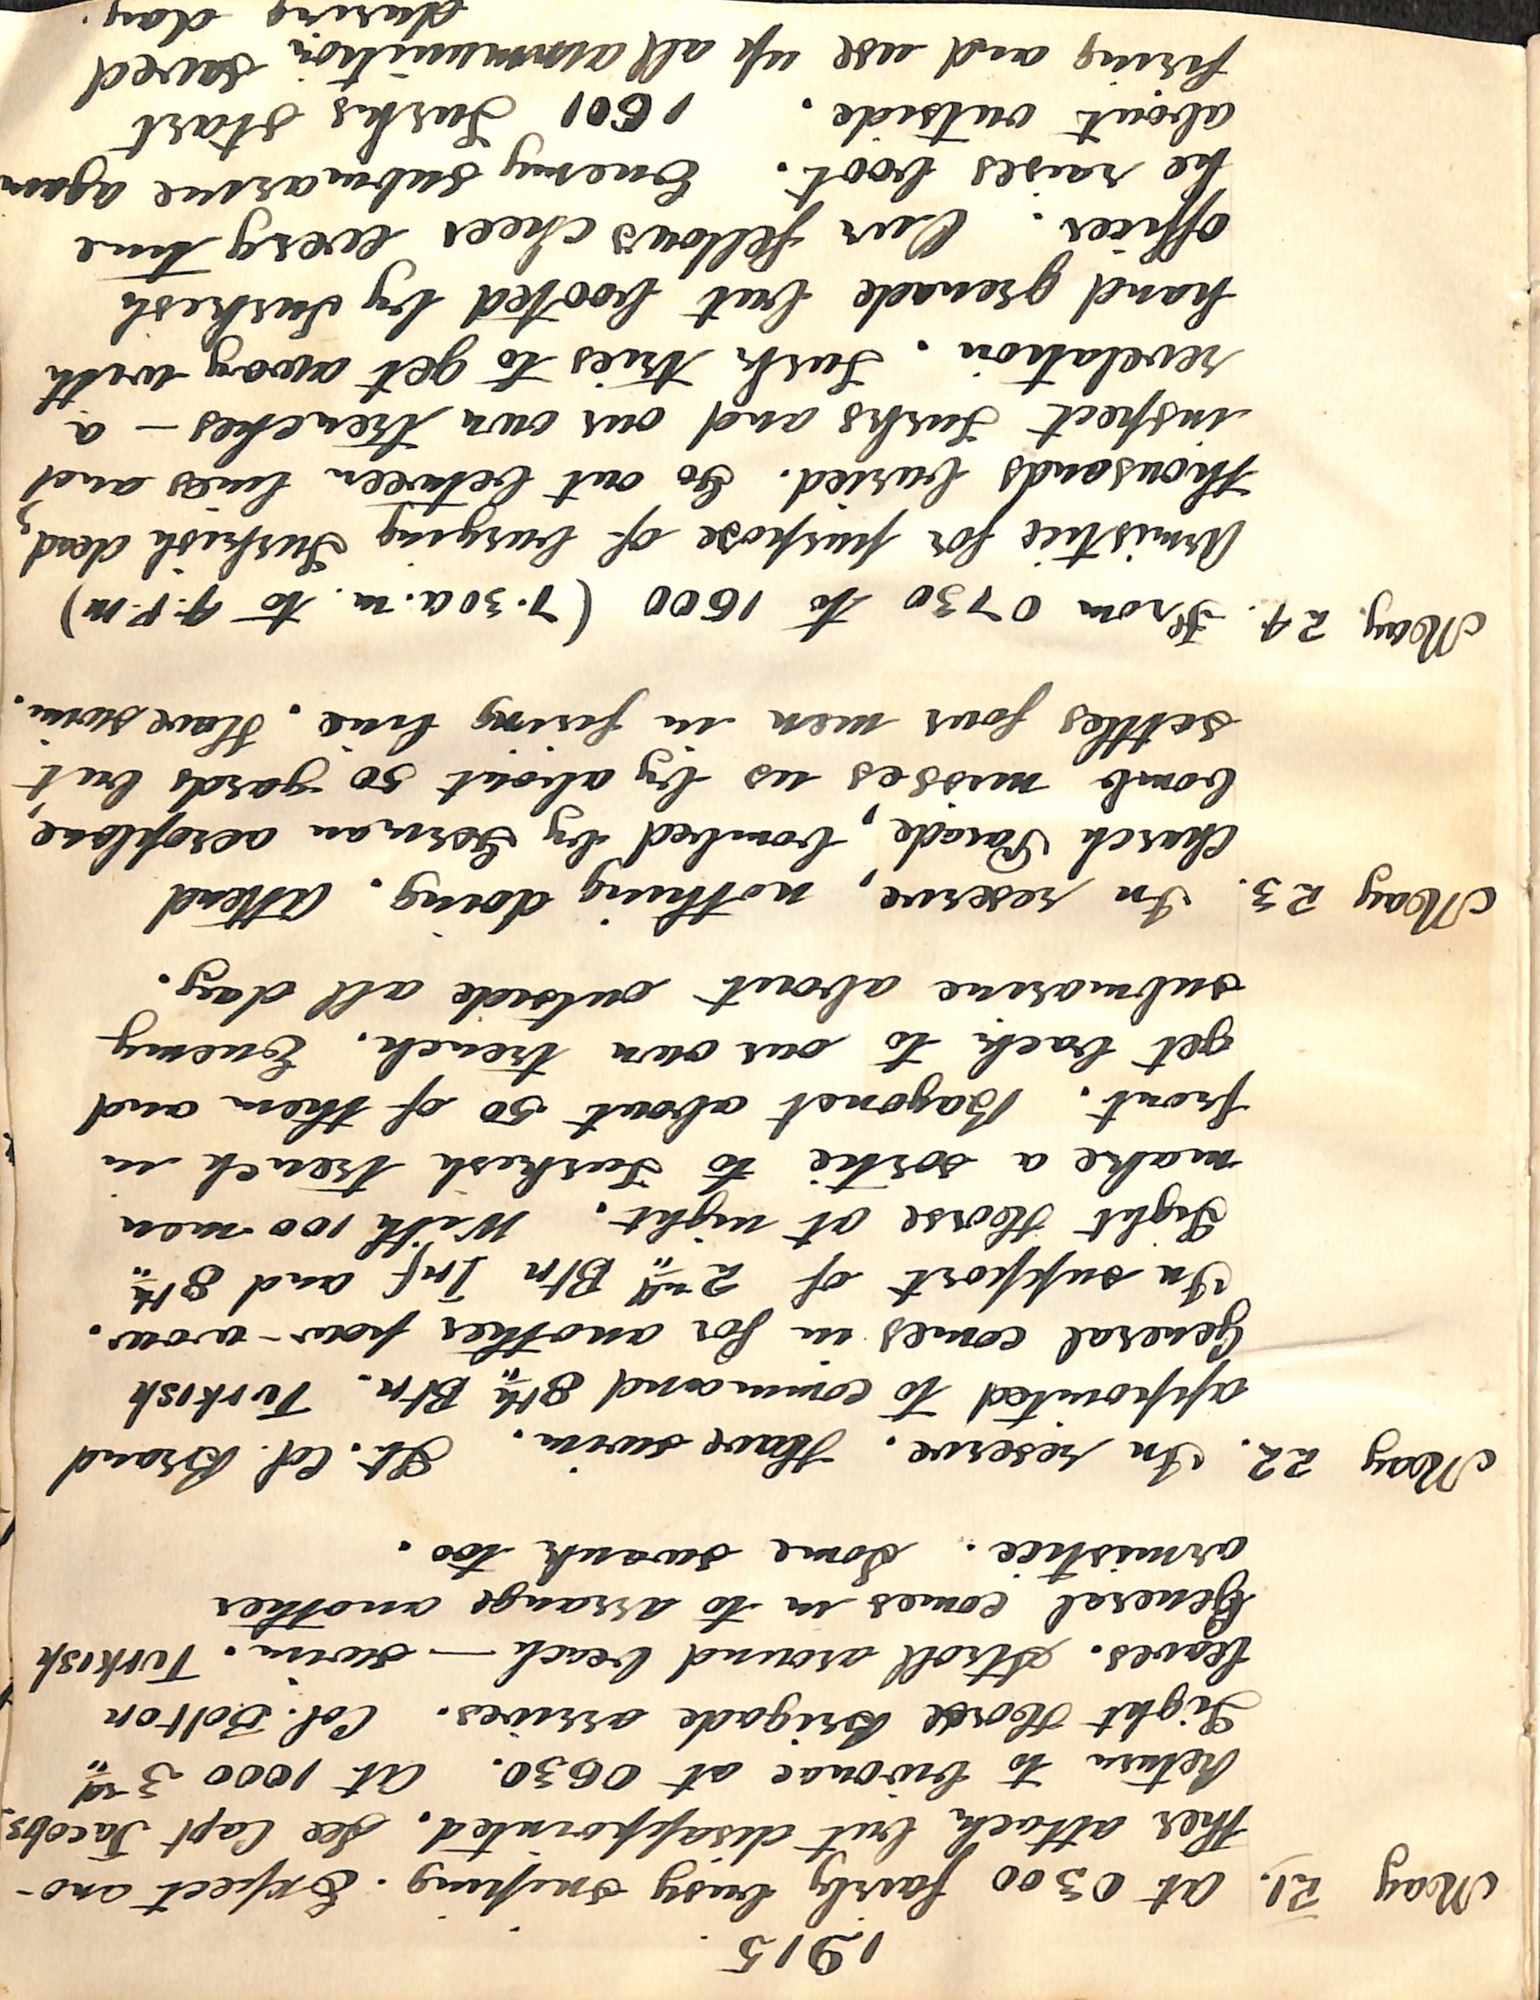 1915
May 21. At 0300 fairly busy sniping. Expect ano-
ther attack but disappointed. See Capt Jacobs.
Return to bivouac at 0630. At 1000 3rd
Light Horse Brigade arrives. Col. Bolton
leaves. Stroll around beach — swim. Turkish
General comes in to arrange another
armistice. Some swank too.
May 22. In reserve. Have swim. Lt. Col. Brand
appointed to command 8th Btn. Turkish
General comes in for another pow-wow.
In support of 2nd Btn Inf and 8th
Light Horse at night. With 100 men
make a sortie to Turkish trench in
front. Bayonet about 50 of them and
get back to our own trench. Enemy
submarine about outside all day.
May 23. In reserve, nothing doing. Attend
Church Parade, bombed by German aeroplane,
bomb misses us by about 50 yards but
settles four men in firing line. Have swim.
May. 24. From 0730 to 1600 (7.30a.m. to 4.P.m)
Armistice for purpose of burying Turkish dead,
thousands buried. Go out between lines and
inspect Turks and our own trenches — a
revelation. Turk tries to get away with
hand grenade but booted by Turkish
officer. Our fellows cheer every time
he raises boot. Enemy submarine again
about outside. 1601 Turks start
firing and use up all ammunition saved
during day.